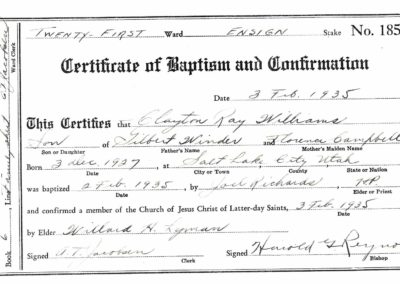 TWENTY-FIRST Ward ENSIGN Stake No. 185
Certificate of Baptism and Confirmation
Date 3 Feb. 1935
This Certifies that Clayton Kay Williams
Son of Gilbert Winder and Florence Campbell
Son or Daughter Father's Name Mother's Maiden Name
Born 3 Dec. 1927, at Salt Lake City Utah
Date City or Town County State or Nation
was baptized 2 Feb. 1935, by Joel Richards,
Date Elder or Priest
and confirmed a member of the Church of Jesus Christ of Latter-day Saints, 3 Feb. 1935
Date
by Elder Willard H. Lyman
Signed A. T. Jacobsen Signed Harold G Reyno
Clerk Bishop
Ward Clerk
Book